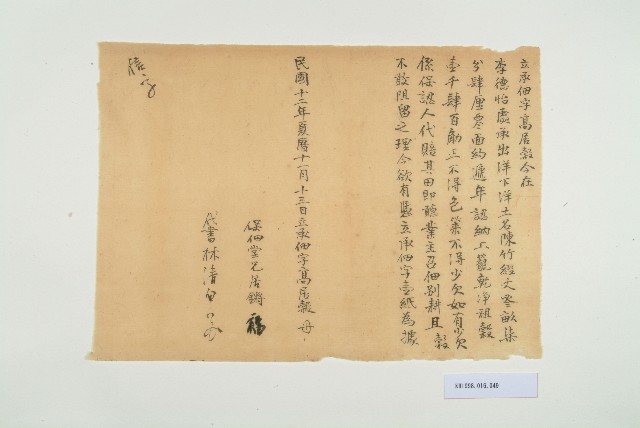 立承佃字高居穀今在
李德怡處承出洋下洋土名陳竹經丈零畝柒
分肆厘零面約遞年認納上乾净租穀
壹千肆百觔正不得色策不得少欠如有少欠
係保認人代賠其田即聽業主召佃別耕且穀
不設阻留之理今欲有憑立承佃字壹紙為據
民國十二年夏曆十一月十三日立承佃字高居穀 母
保佃堂兄居鏘
代書林清
KH1998.016.049